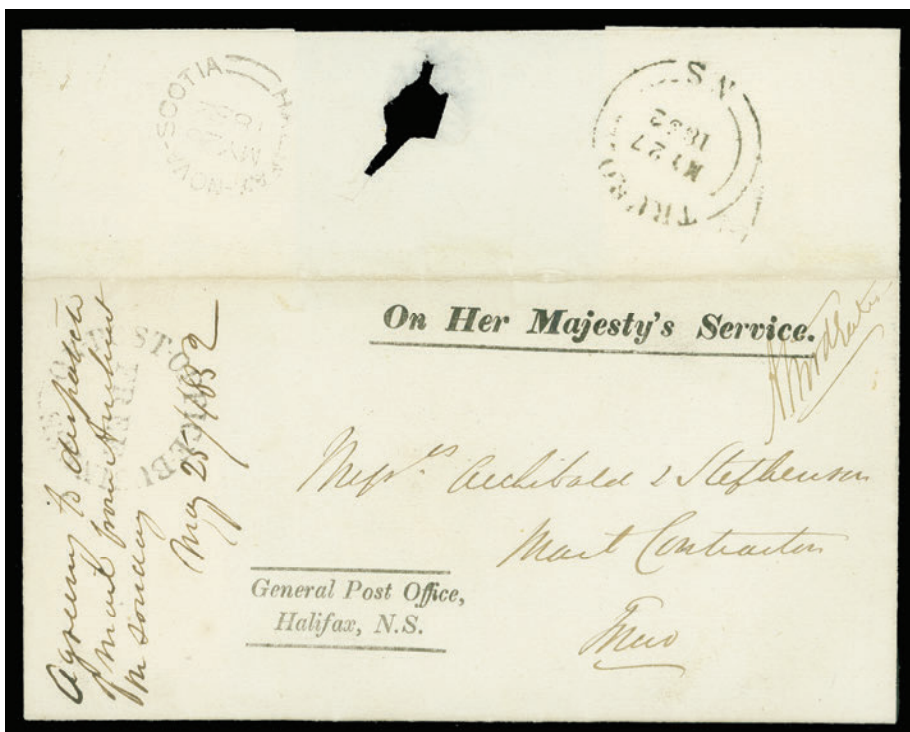 HALIFAX-NOVA-SCOTIA
MY
TRURO
N.S
MY 27
1852
On Her Majesty's Service.
Mess.rs Archibald & Stephenson
Mail Contractors
Truro
General Post Office,
Halifax, N.S.
Agreeing to despatch
mail from Amherst
on sunday
May 25/1852
FREE